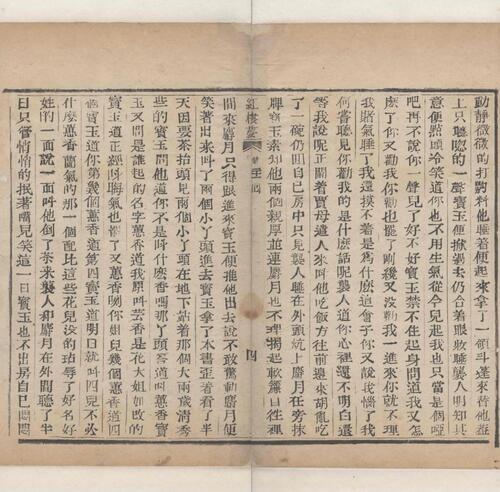 動靜微微的打鼾料他睡着便起來拿了一領斗蓬來替他蓋
上只聽唿的一聲寶玉便掀過去仍合着眼粧睡襲人明知其
意便點頭冷笑道你也不用生氣從今兒起我也只當是個啞
吧再不說你一聲兒了好不好寶玉禁不住起身問道我又怎
麽了你又勸我你勸也罷了剛纔又没勸我一進來你就不理
我賭氣睡了我還摸不着是爲什麽這會子你又說我惱了我
何嘗聽見你勸我的是什麽話呢襲人道你心裡還不明白還
等我說呢正鬧着賈母遣人來叫他吃飯方往前邊來胡亂吃
了一碗仍回自己房中只見襲人睡在外頭炕上麝月在旁抹
牌寶玉素知他兩個親厚並連麝月也不理揭起軟簾自往裡
紅樓夢 第二十一囘 四
間來麝月只得跟進來寶玉便推他出去說不敢驚動麝月便
笑着出來叫了兩個小丫頭進去寶玉拿了本書歪着看了半
天因要茶抬頭見兩個小丫頭在地下站着那個大兩歲清秀
些的寶玉問他道你不是叫什麽香嗎那丫頭答道叫蕙香寶
玉又問是誰起的名字蕙香道我原叫芸香是花大姐姐改的
寶玉道正經叫晦氣也罷了又蕙香咧你姐兒幾個蕙香道四
個寶玉道你第幾個蕙香道第四寶玉道明日就叫四兒不必
什麽蕙香蘭氣的那一個配比這些花兒没的玷辱了好名好
姓的一面說一面叫他倒了茶來襲人和麝月在外間聽了半
日只管悄悄的抿着嘴兒笑這一日寶玉也不出房自己悶悶